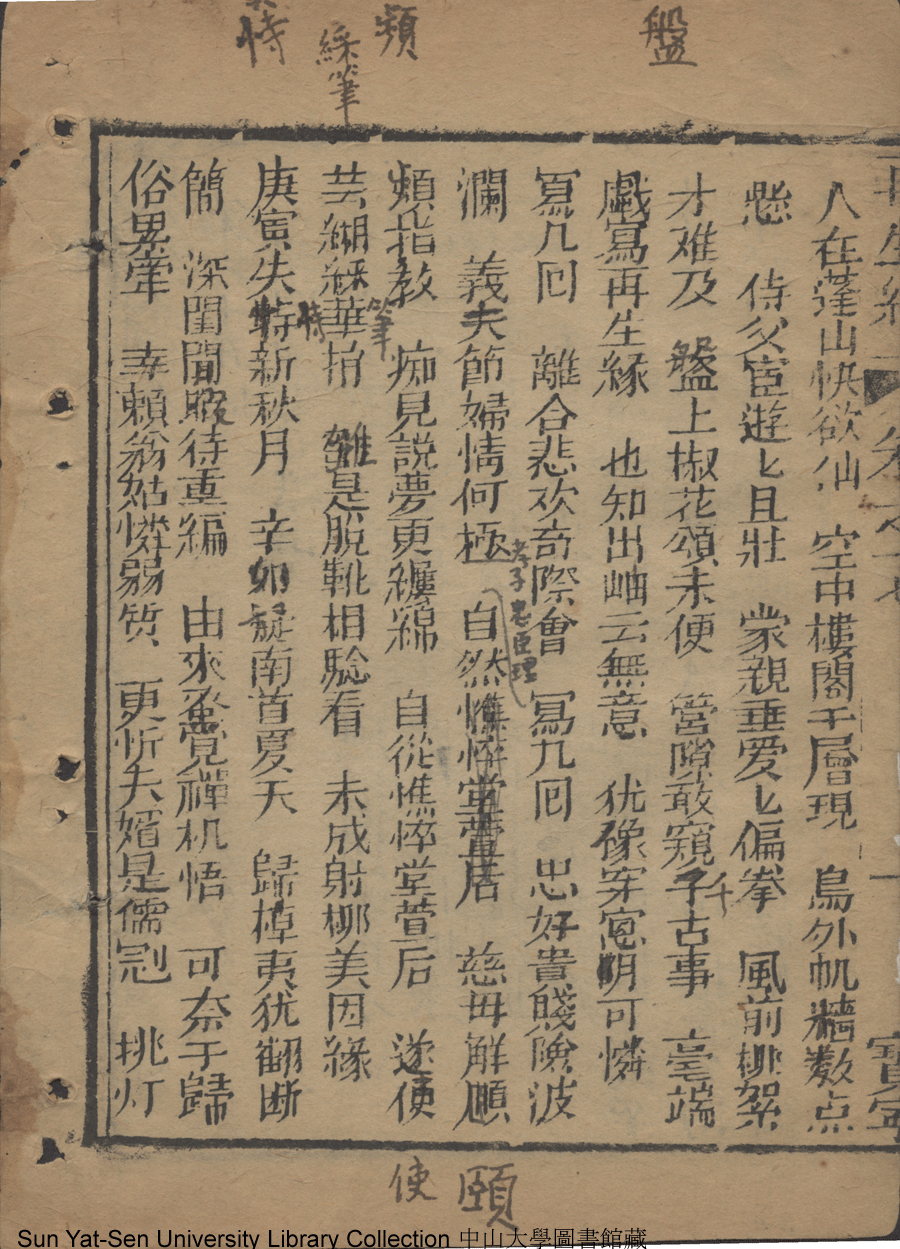 盤
頻
綵筆
恃
再生緣 卷之十七 一 寳寕
人在蓬山快欲仙 空中樓閣千層現 鳥外帆檣数点
懸 侍父宦遊匕且壯 蒙親垂爱匕偏拳 風前桃絮
才难及 盤上椒花頌未便 營隙敢窺子古事 毫端
千
戲寫再生緣 也知出岫云無意 犹像穿窓明可憐
冩几囘 離合悲欢奇際會 冩九囘 忠好貴賤險波
瀾 義夫節婦情何極 自然憔悴堂萱居 慈母解頤
孝子忠臣理
頻指教 痴兒說夢更纒綿 自從憔悴堂萱后 遂便
芸緗綵華拍 雖是脫靴相騐看 未成射柳美因緣
筆
庚寅失恃新秋月 辛卯旋南首夏天 歸棹夷犹翻断
恃
簡 深閨聞暇待重編 由來蚤覺禪机悟 可奈于歸
俗累牽 幸賴翁姑憐弱质 更忻夫婿是儒冠 挑灯
使
頤
Sun Yat-Sen University Library Collection 中山大學圖書館藏